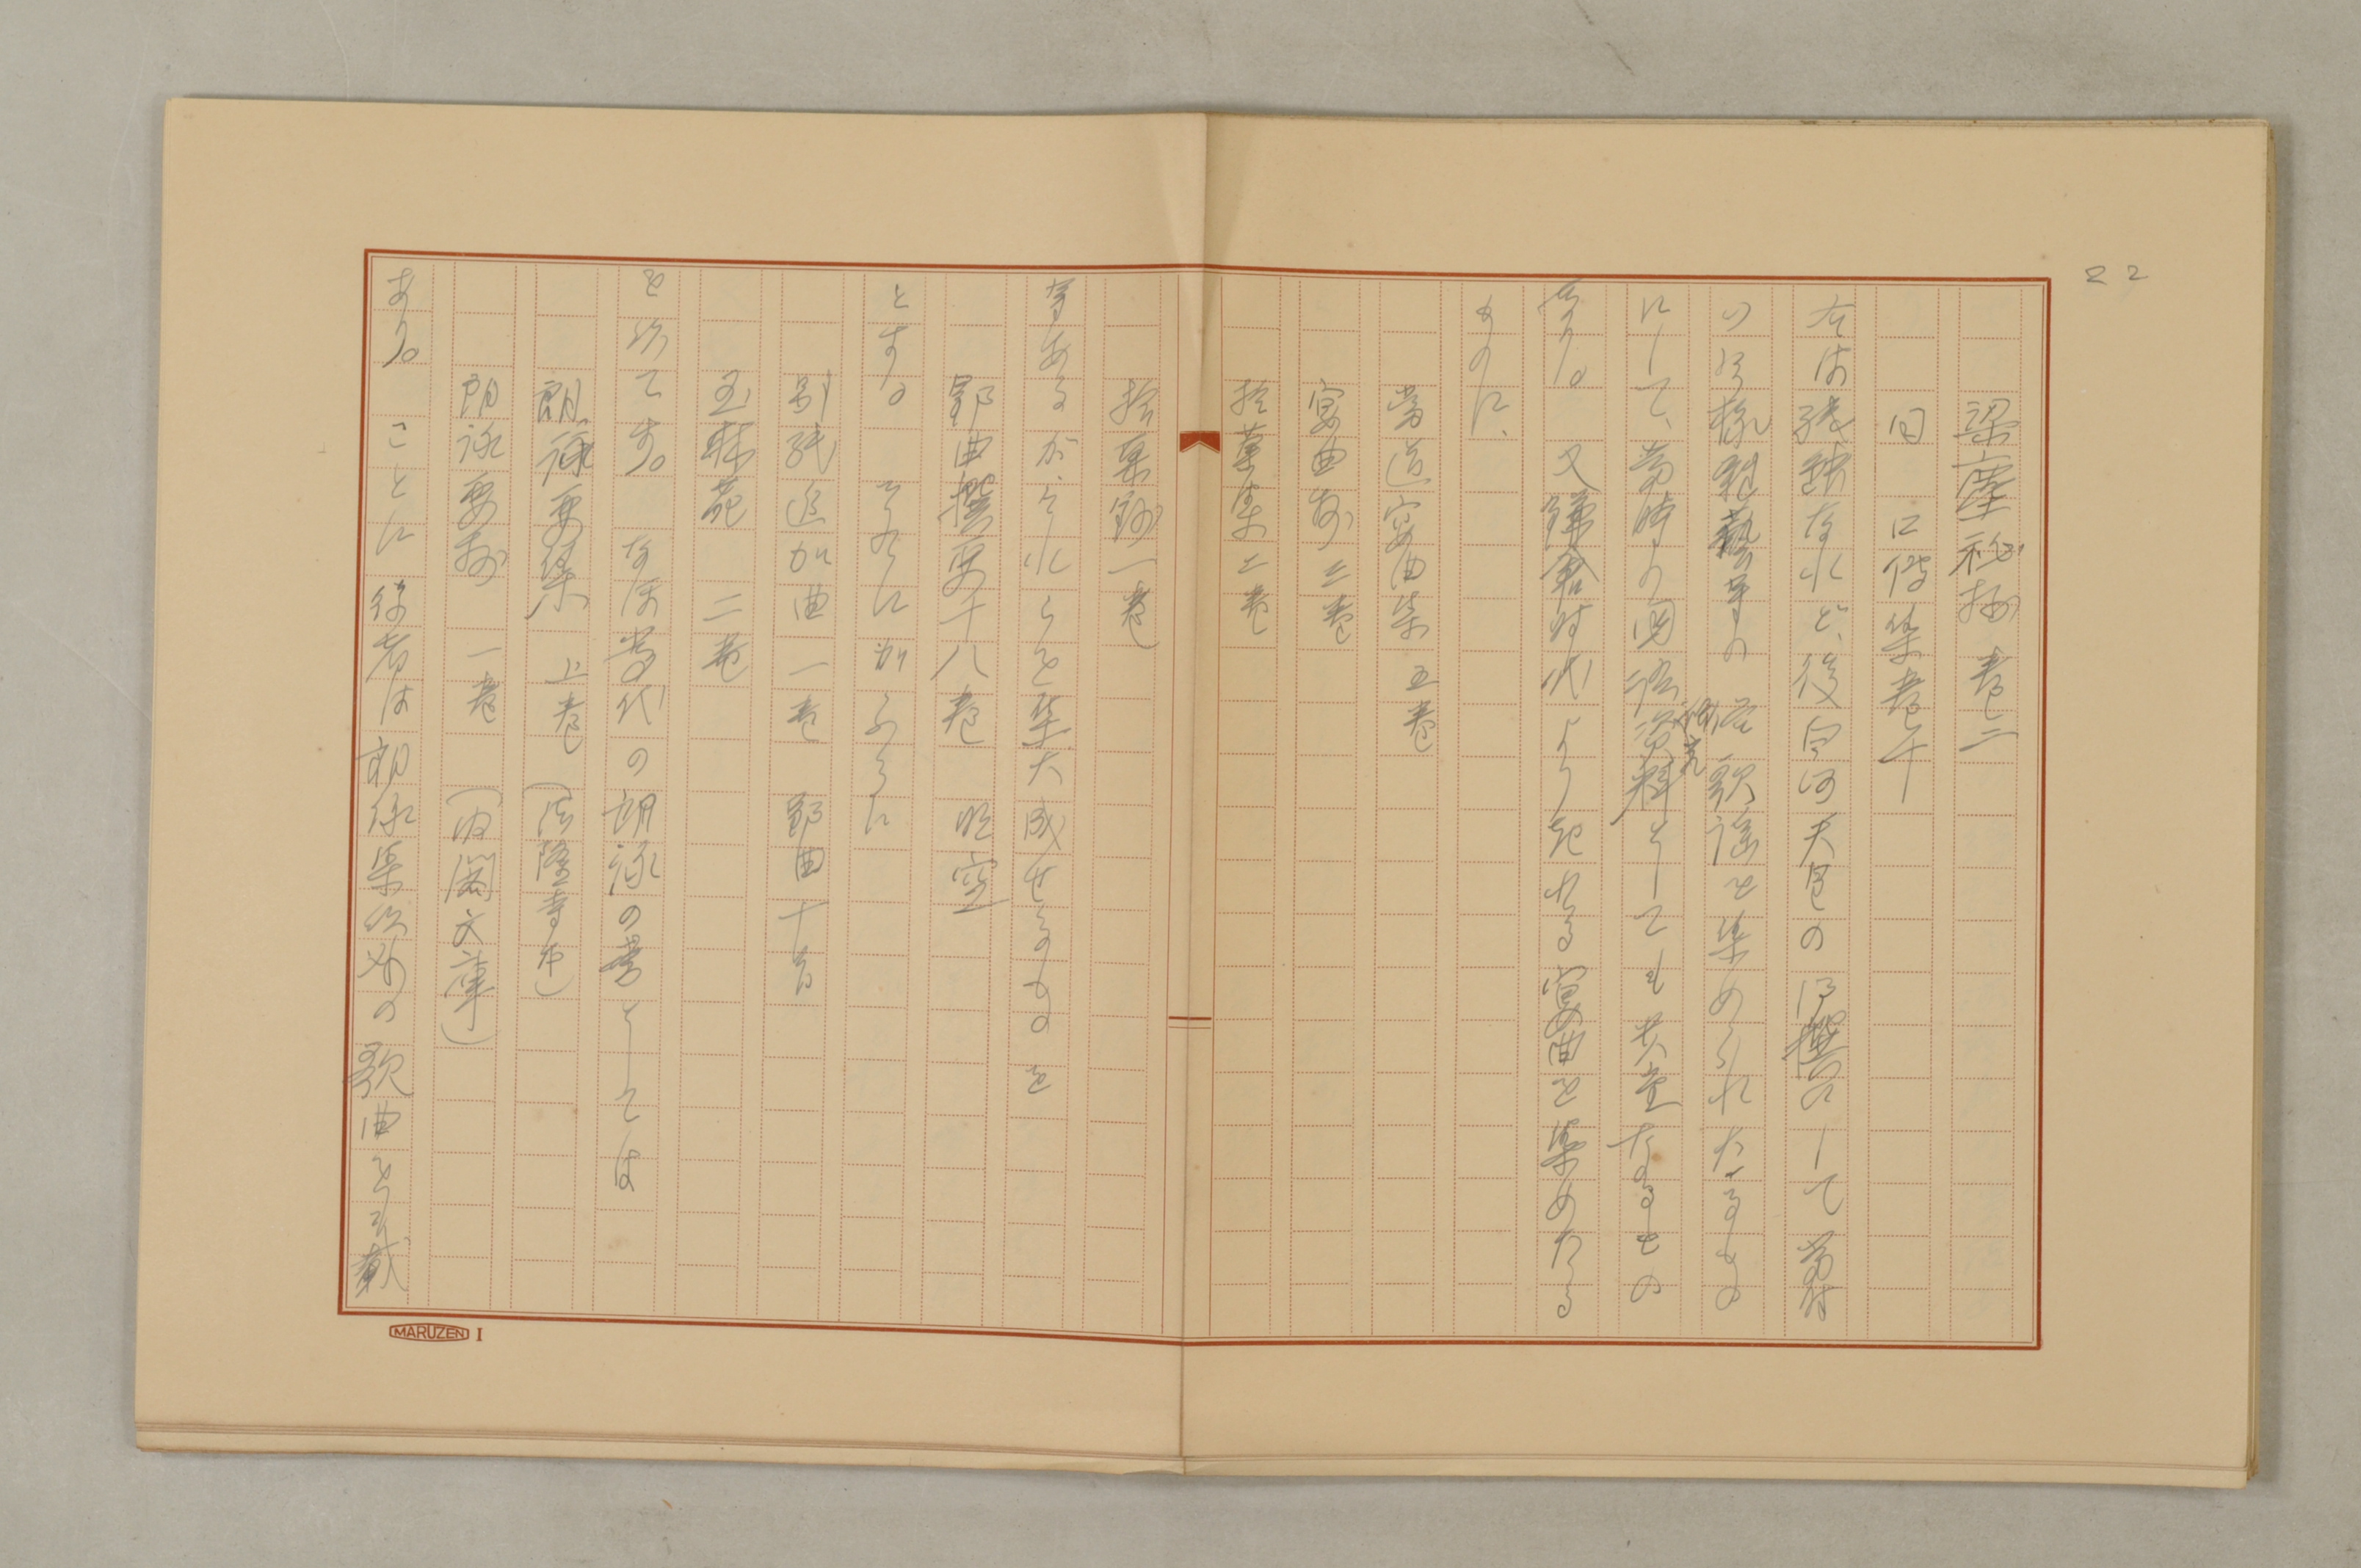 22
梁塵秘抄 巻二
同 口伝集巻十
右は残缺なれど、後白河天皇の御撰にして当時
の雑藝等の 歌謡を集められたるもの
にして、当時の国語資料としても貴重なるもの
なり。又鎌倉時代より起れる宴曲を集めたる
ものに、
宴曲集 五巻
宴曲抄 三巻
拾菓集 二巻
拾菓鈔 一巻
等あるが、それらを集大成せるものを
郢曲撰要十八巻 明空
とす。それに加ふるに
別紙追加曲 一巻 郢曲十首
玉林苑 二巻
を以てす。なほ当代の朗詠の書としては
朗詠要集 上巻 (法隆寺本)
朗詠要抄 一巻 (内閣文庫)
あり。ことに後者は朗詠集以外の歌曲をも載
MARUZEN I